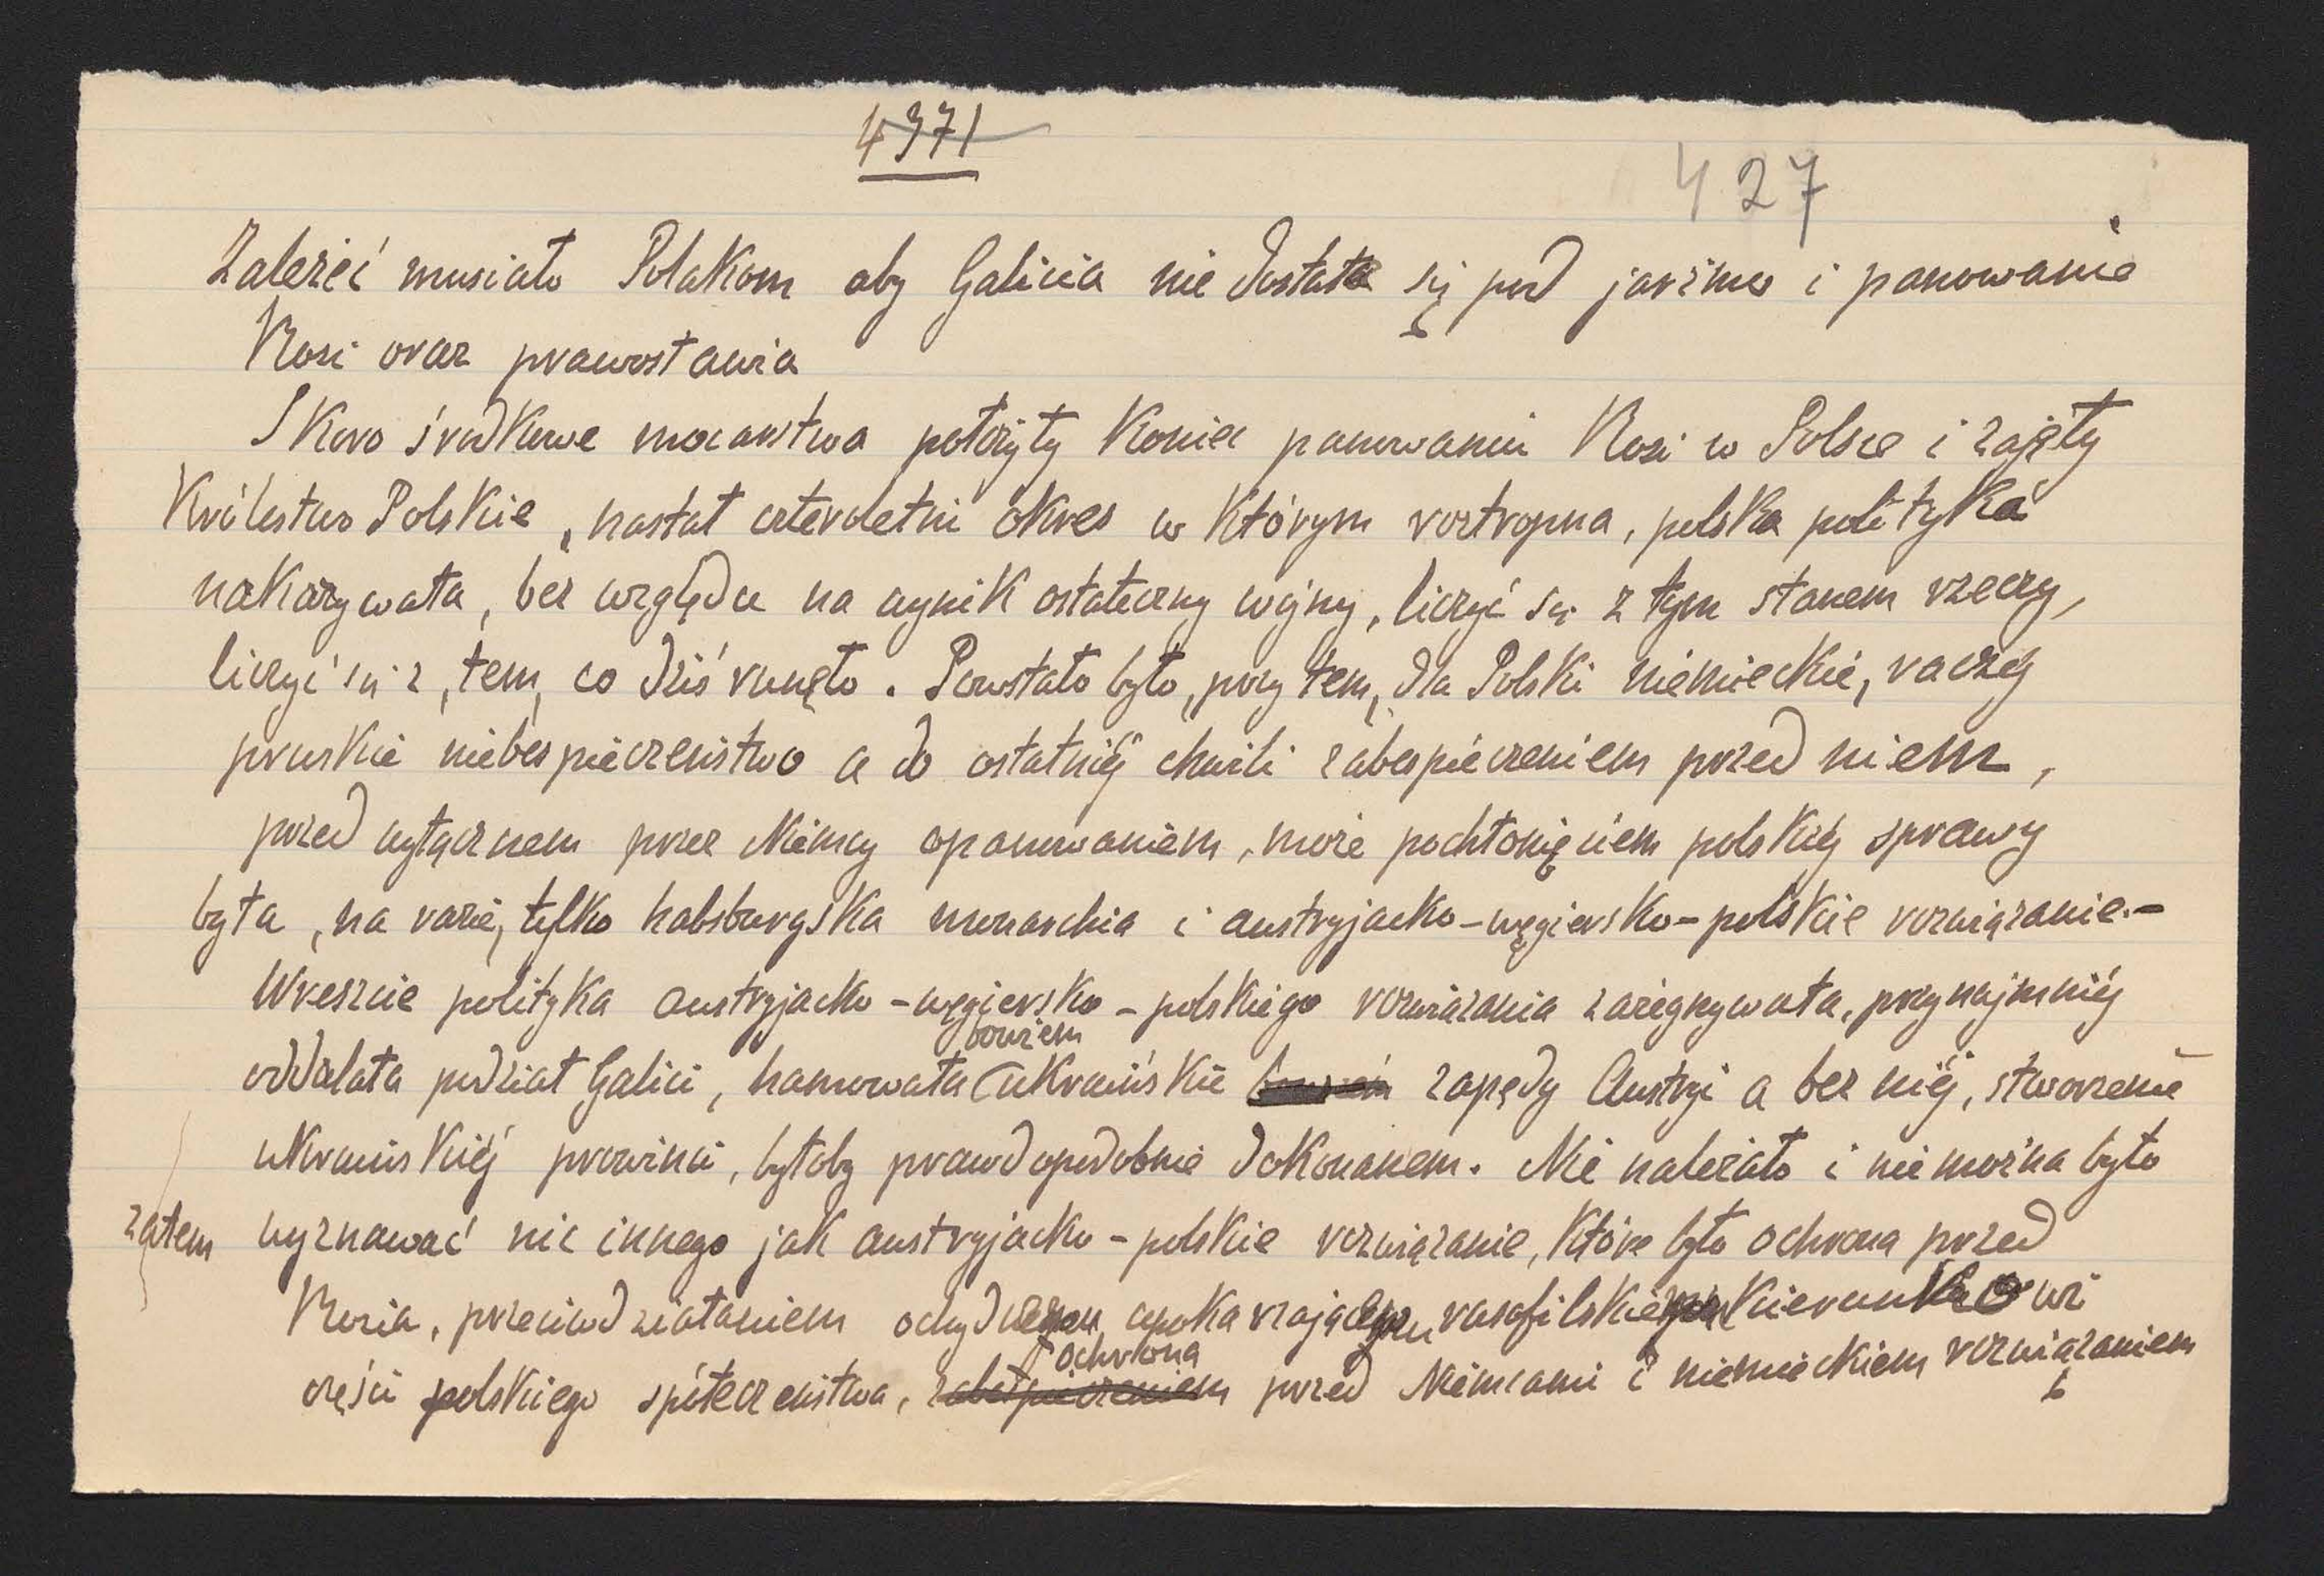 4371
427
Zależeć musiało Polakom aby Galicia nie dostała się pod jarzmo i panowanie
Rosi oraz prawosławia
Skoro środkowe mocarstwa położyły koniec panowaniu Rosi w Polsce i zajęły
Królestwo Polskie, nastał czteroletni okres w którym roztropna, polska polityka
nakazywała, bez względu na wynik ostateczny wojny, liczyć się z tym stanem rzeczy,
liczyć się z, tem, co dziś runęło. Powstało było, przy tem, dla Polski niemieckie, raczéj
pruskie niebespieczeństwo a do ostatniéj chwili zabespieczeniem przed niem,
przed wyłącznem przez Niemcy opanowaniem, może pochłonięciem polskiéj sprawy
była, na razie, tylko habsburgska monarchia i austryjacko-węgiersko-polskie rozwiązanie.-
Wreszcie polityka austryjacko-węgiersko-polskiego rozwiązania zażegnywała, przynajmniéj
bowiem
oddalała podział Galici, hamowała ukraińskie zapędy Austryi a bez niéj, stworzenie
ukraińskiéj prowinci, byłoby prawdopodobnie dokonanem. Nie należało i nie można było
zatem wyznawać nic innego jak austryjacko-polskie rozwiązanie, które było ochrona przed
Rosia, przeciwdziałaniem ohydnemu upokarzającemu rusofilskiemu kierunkowi
ochrona
części polskiego spółeczeństwa, zabespieczeniem przed Niemcami i niemieckiem rozwiązaniem